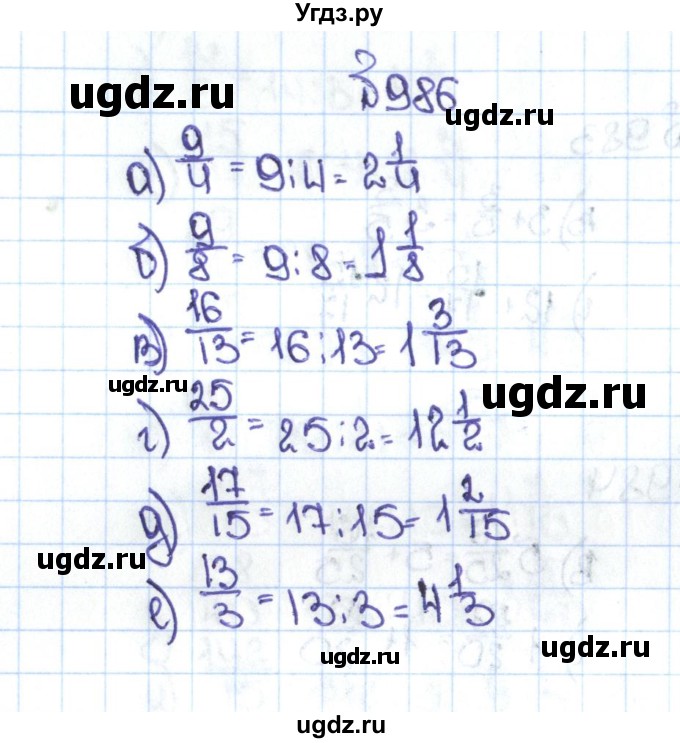 Угдз.ру
ugdz.ru
№986
ugdz.ru
а) 9/4 = 9:4 = 2 1/4
б) 9/8 = 9:8 = 1 1/8
в) 16/13 = 16:13 = 1 3/13
ugdz.ru
ugdz.ru
г) 25/2 = 25:2 = 12 1/2
д) 17/15 = 17:15 = 1 2/15
ugdz.ru
ugdz.ru
е) 13/3 = 13:3 = 4 1/3
ugdz.ru
ugdz.ru